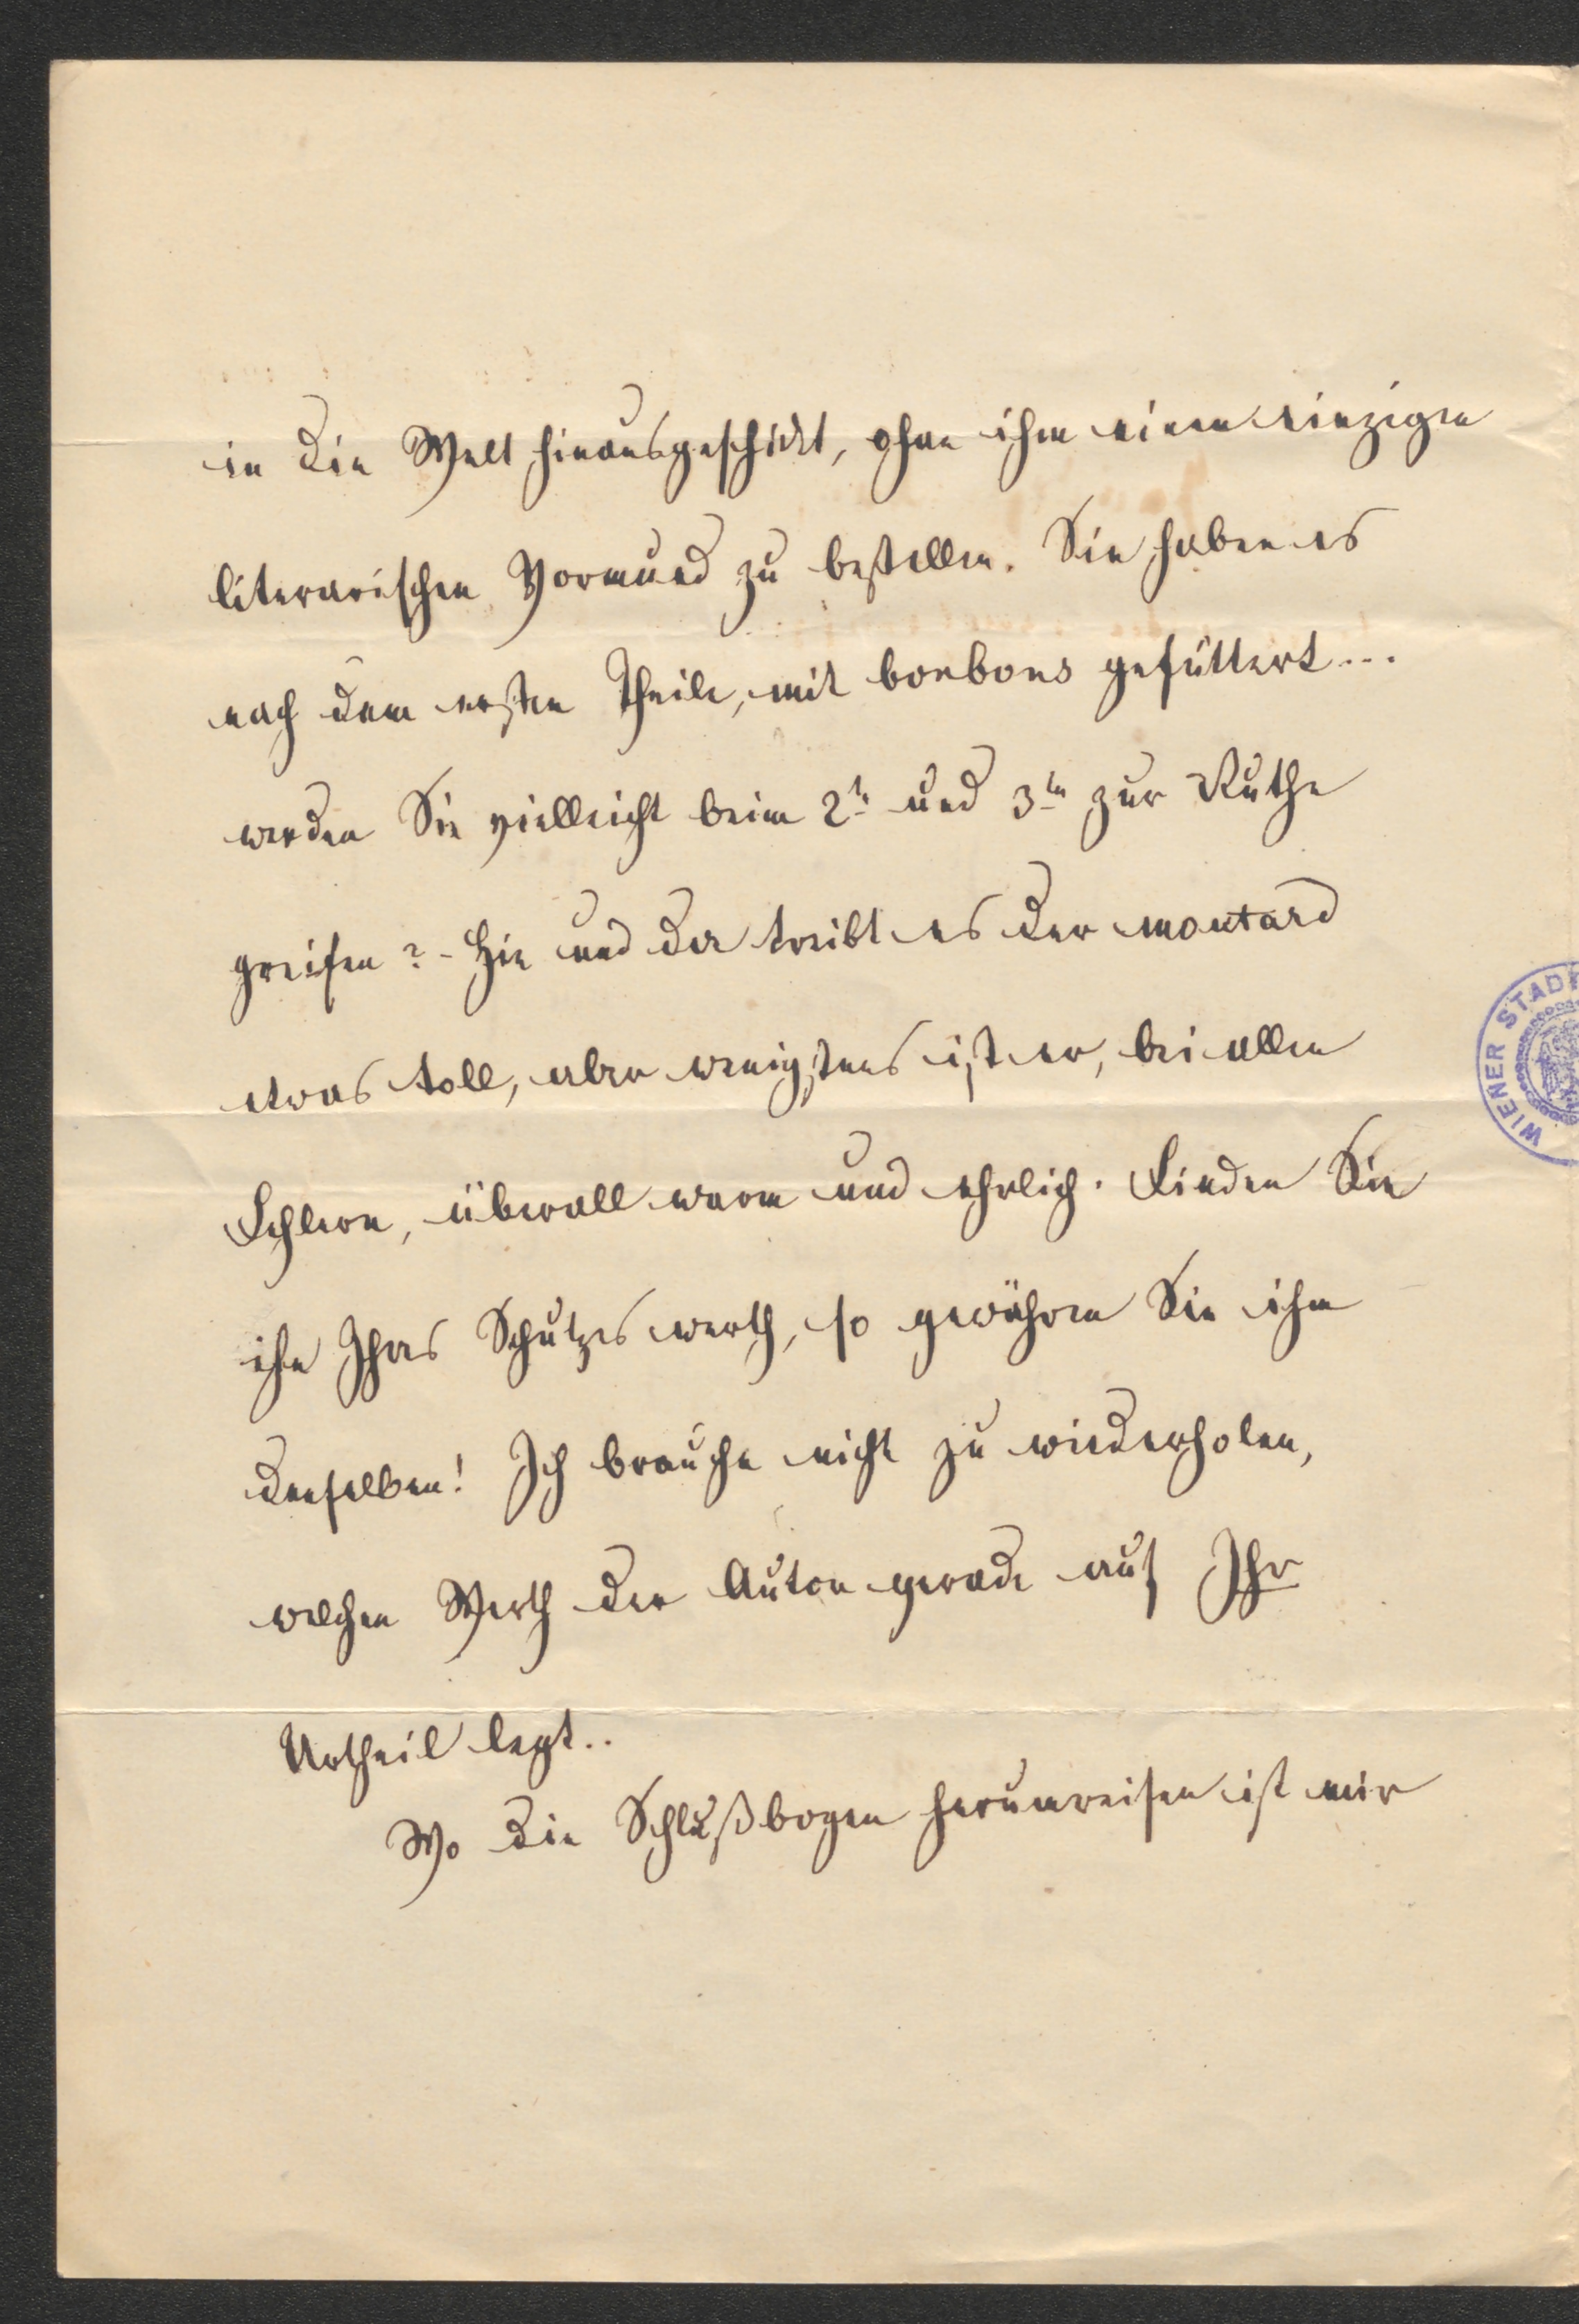 in die Welt hinausgeschickt, ohne ihm einen einzigen
literarischen Vormund zu bestellen. Sie haben es
nach dem ersten Theile, mit bonbons gefüttert...
werden Sie vielleicht beim 2tn und 3tn zur Ruthe
greifen? - Hie und da treibt es der moutard
etwas toll, aber wenigstens ist er, bei allen
Fehlern, überall warm und ehrlich. Finden Sie
ihn Ihres Schutzes werth, so gewähren Sie ihm
denselben! Ich brauche nicht zu wiederholen,
welchen Werth der Autor gerade auf Ihr
Urtheil legt..
Wo die Schlußbogen herumreisen ist mir
WIENER STAD